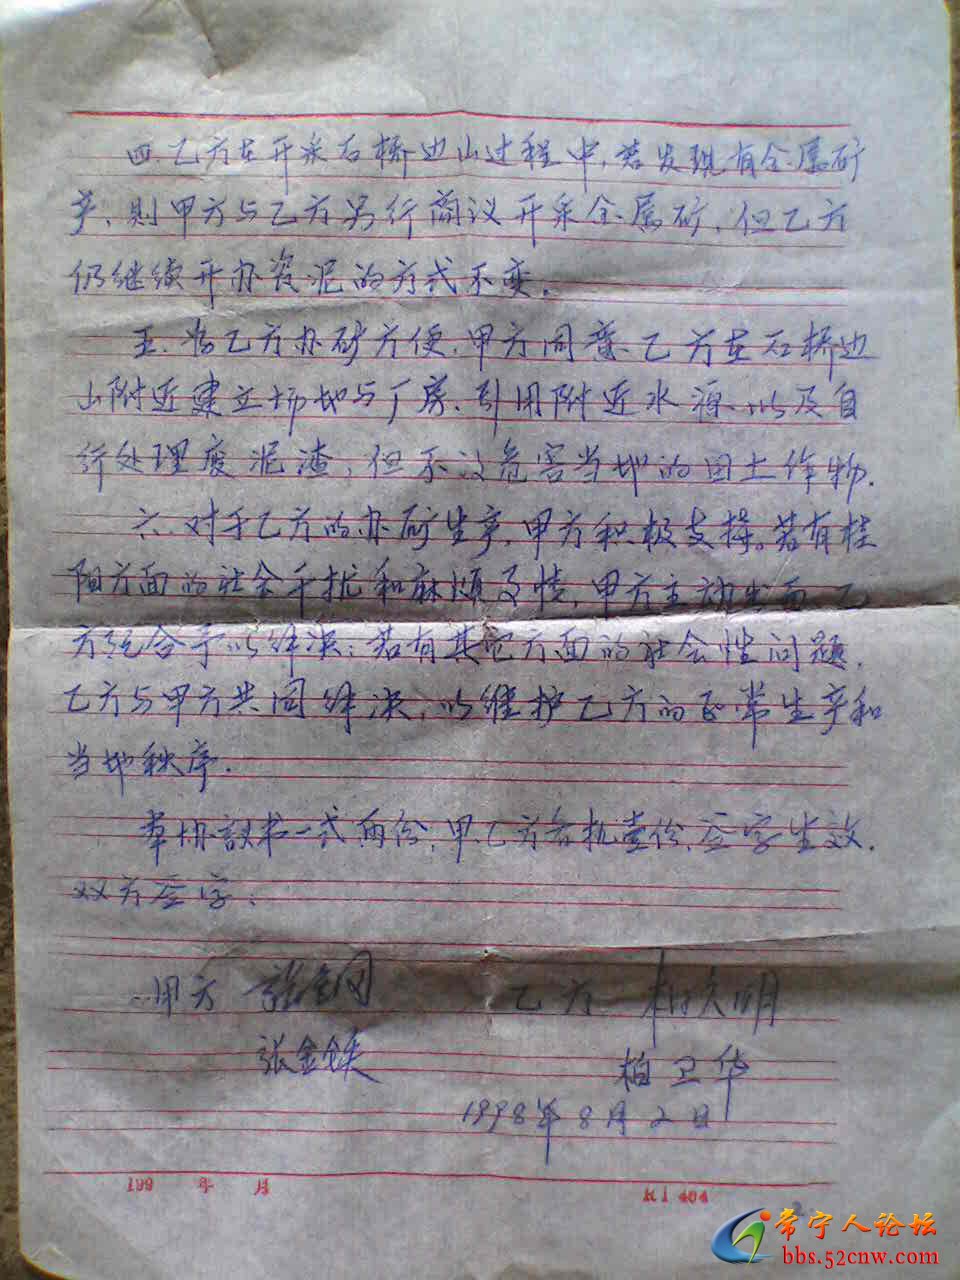 四、乙方在开采石桥边山过程中,若发现有金属矿
产,则甲方与乙方另行商议开采金属矿,但乙方
仍继续开办瓷泥的方式不变。
五、为乙方办矿方便,甲方同意乙方在石桥边
山附近建立场地与厂房、引用附近水源、以及自
行处理废泥渣,但不议危害当地的田土作物.
六、对于乙方的办矿生产,甲方积极支持。若有桂
阳方面的社会干扰和麻烦事情,甲方主动出面乙
方配合予以解决;若有其它方面的社会性问题,
乙方与甲方共同解决,以维护乙方的正常生产和
当地秩序.
本协议书一式两份,甲乙方各执壹份,签字生效.
双方签字:
甲方 张金 乙方 柏文明
张金铁 柏卫华
1998年8月2日
199 年 月
2
常宁人论坛
bbs.52cnw.com